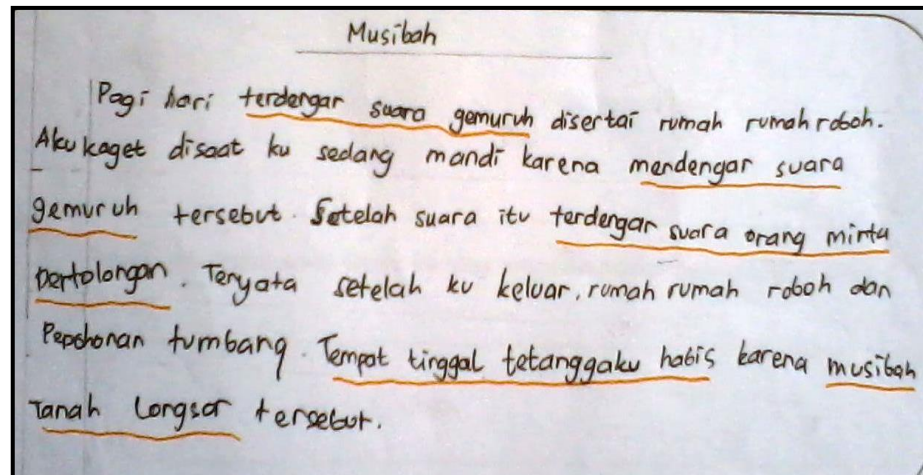 Musibah
Pagi hari terdengar suara gemuruh disertai rumah rumah roboh.
Aku kaget disaat ku sedang mandi karena mendengar suara
gemuruh tersebut. Setelah suara itu terdengar suara orang minta
pertolongan. Teryata setelah ku keluar, rumah rumah roboh dan
Pepohonan tumbang. Tempat tinggal tetanggaku habis karena musibah
Tanah Longsor tersebut.